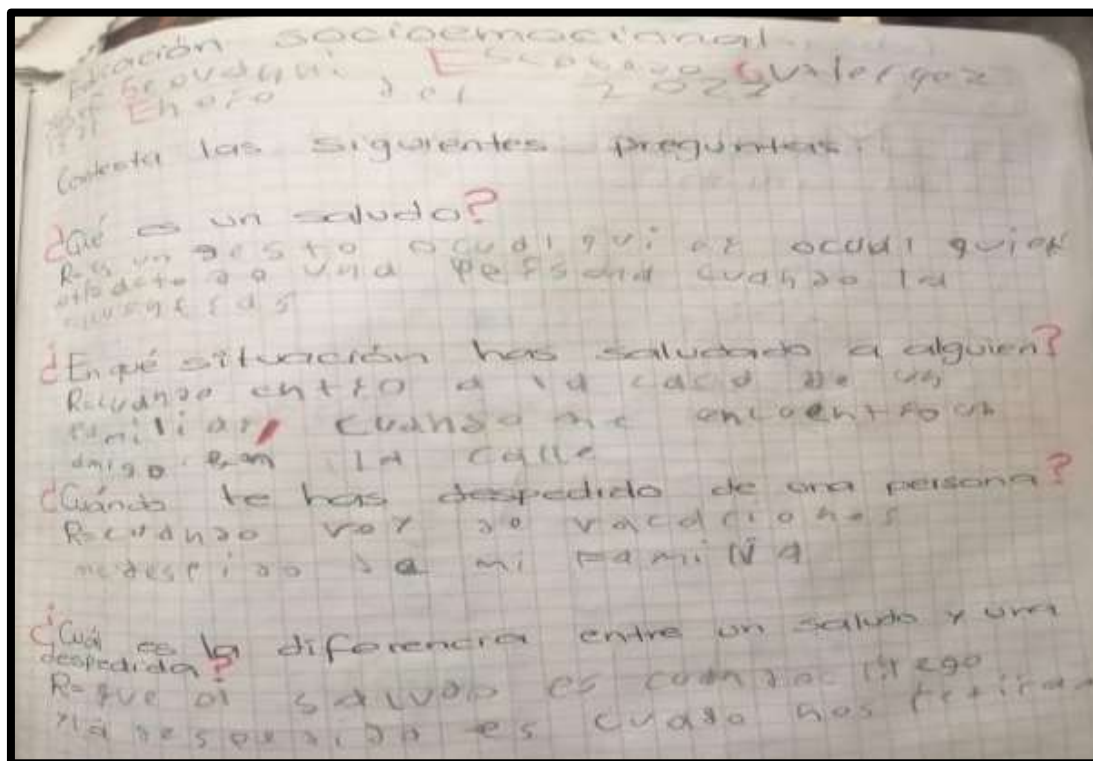 socioemocional
Enero del 2022
Contesta las siguientes preguntas:
¿Qué es un saludo?
R= es un gesto o cudi quier ocudi quier
de una persona cuando la
¿En qué situación has saludado a alguien?
R= cuando entro a la caca de un
familiar, cuando me encuentro un
amigo en la calle
¿Cuándo te has despedido de una persona?
R= cuando voy de vacaciones
me despido de mi familia
¿Cuál es la diferencia entre un saludo y una
despedida?
R= que el saludo es cuando llego
y la despedida es cuado nos